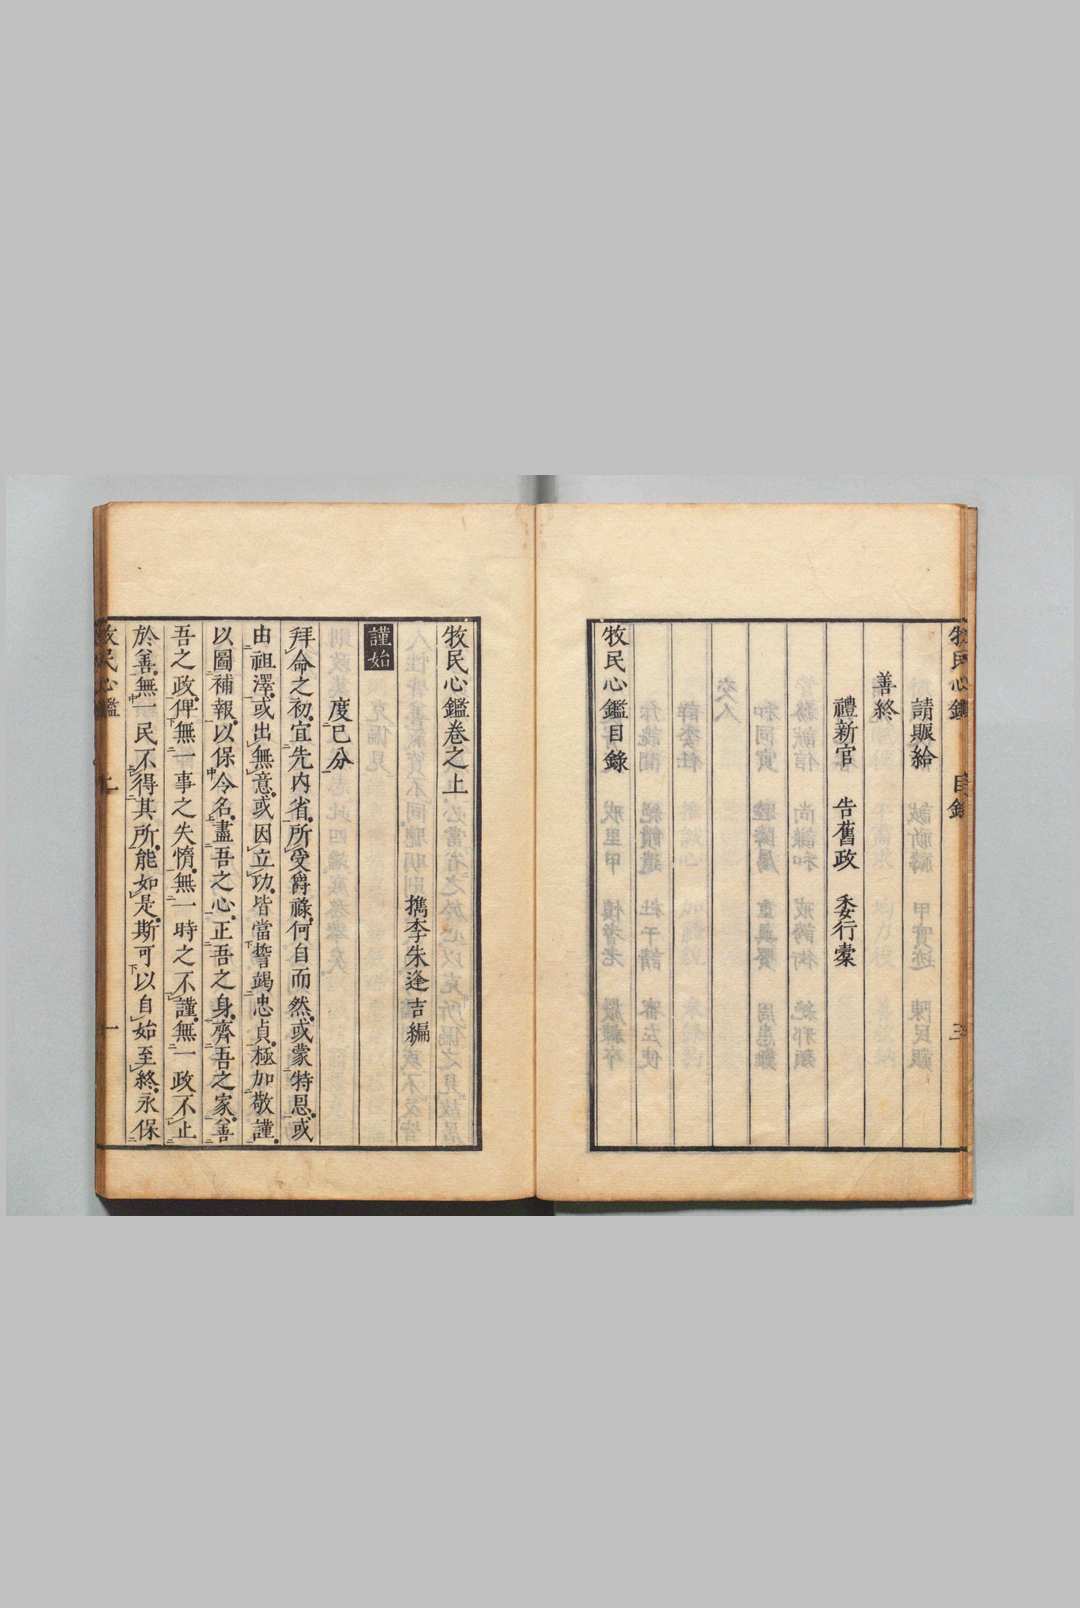 牧民心鑑 目錄 三
請賑給
善終
禮新官 告舊政 委行橐
牧民心鑑目錄
牧民心鑑卷之上
檇李朱逢吉編
謹始
度已分
拜命之初宜先內省所受爵祿何自而然或蒙特恩或
由祖澤或出無意或因立功皆當誓竭忠貞極加敬謹
以圖補報以保令名盡吾之心正吾之身齊吾之家善
吾之政俾無一事之失惰無一時之不謹無一政不止
於善無一民不得其所能如是斯可以自始至終永保
牧民心鑑 上 一